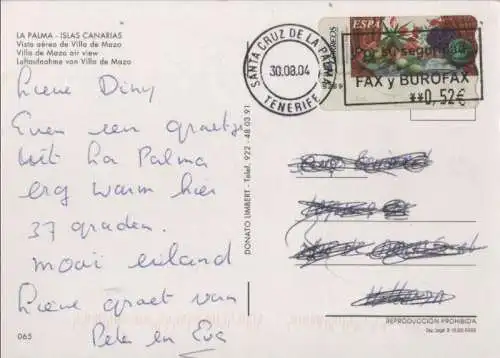 LA PALMA - ISLAS CANARIAS
Vista aérea de Villa de Mazo
Villa de Mazo air view
Luftaufnahme von Villa de Mazo
Lieve Diny
Even een groetje
uit La Palma
erg warm hier
37 graden.
mooi eiland
Lieve groet van
en Eva
065
DONATO LIMBERT - Telef. 922 - 48 03 91
SANTA CRUZ DE LA PALMA
30.08.04
TENERIFE
ESPAÑA
CORREOS
Por su seguridad
FAX y BUROFAX
**0,52€
REPRODUCCION PROHIBIDA